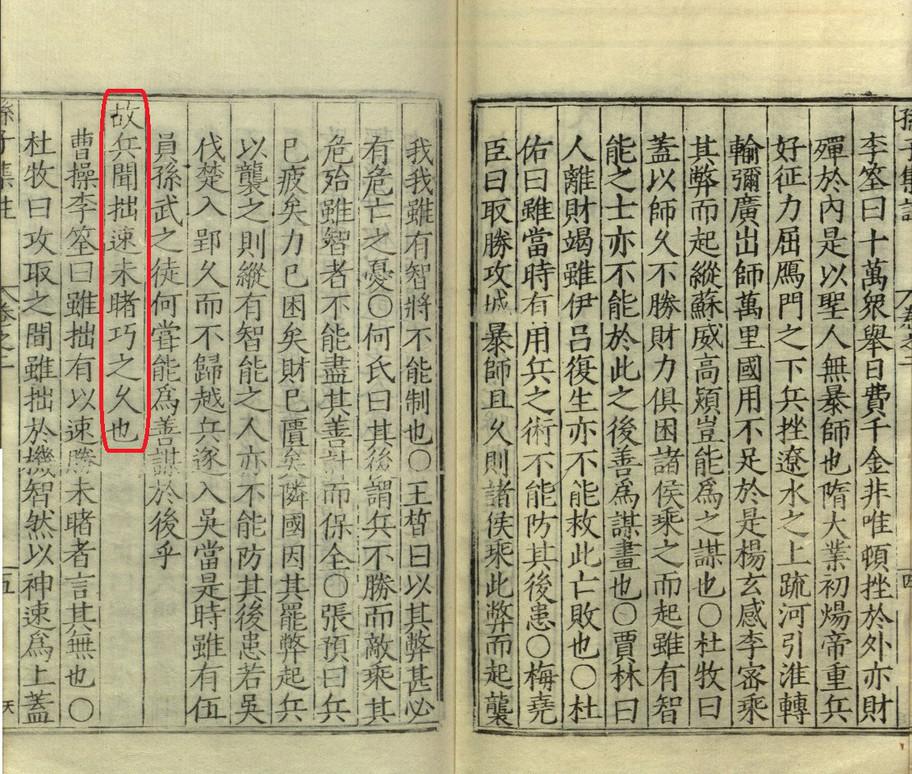 李筌曰十萬衆舉日費千金非唯頓挫於外亦財
殫於內是以聖人無暴師也隋大業初煬帝重兵
好征力屈鴈門之下兵挫遼水之上䟽河引淮轉
輸彌廣出師萬里國用不足於是楊玄感李宻乘
其弊而起縱蘇威高熲豈能爲之謀也〇杜牧曰
蓋以師久不勝財力俱困諸侯乘之而起雖有智
能之士亦不能於此之後善爲謀畫也〇賈林曰
人離財竭雖伊吕復生亦不能救此亡敗也〇杜
佑曰雖當時有用兵之術不能防其後患〇梅堯
臣曰取勝攻城暴師且久則諸侯乘此弊而起襲
我我雖有智將不能制也〇王晳曰以其弊甚必
有危亡之憂〇何氏曰其後謂兵不勝而敵乘其
危殆雖智者不能盡其善計而保全〇張預曰兵
已疲矣力已困矣財已匱矣隣國因其罷弊起兵
以襲之則縱有智能之人亦不能防其後患若吳
伐楚入郢久而不歸越兵遂入吳當是時雖有伍
員孫武之徒何嘗能爲善謀於後乎
故兵聞拙速未睹巧之久也
曹操李筌曰雖拙有以速勝未睹者言其無也〇
杜牧曰攻取之間雖拙於機智然以神速爲上蓋